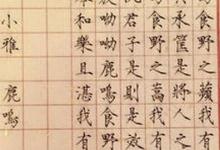 食野之蘋我有
承筐是將人之
食野之蒿我有
君子是則是效
呦鹿鳴食野
和樂且湛我有
小雅 鹿鳴